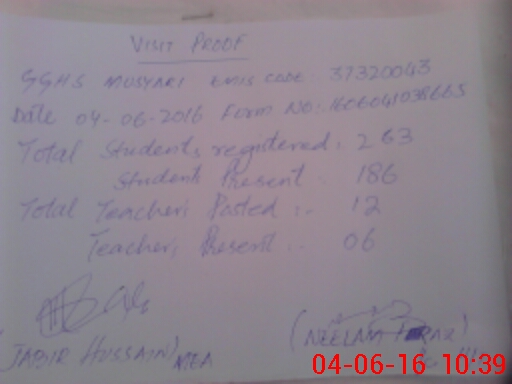 VISIT PROOF
GGHS MUSYARI EMIS CODE: 37320043
Date 04-06-2016 Form No: 1606041038665
Total Students registered: 263
Students Present 186
Total Teachers Posted:- 12
Teachers Present:- 06
(JABIR HUSSAIN) MEA
(NEELAM
04-06-16 10:39